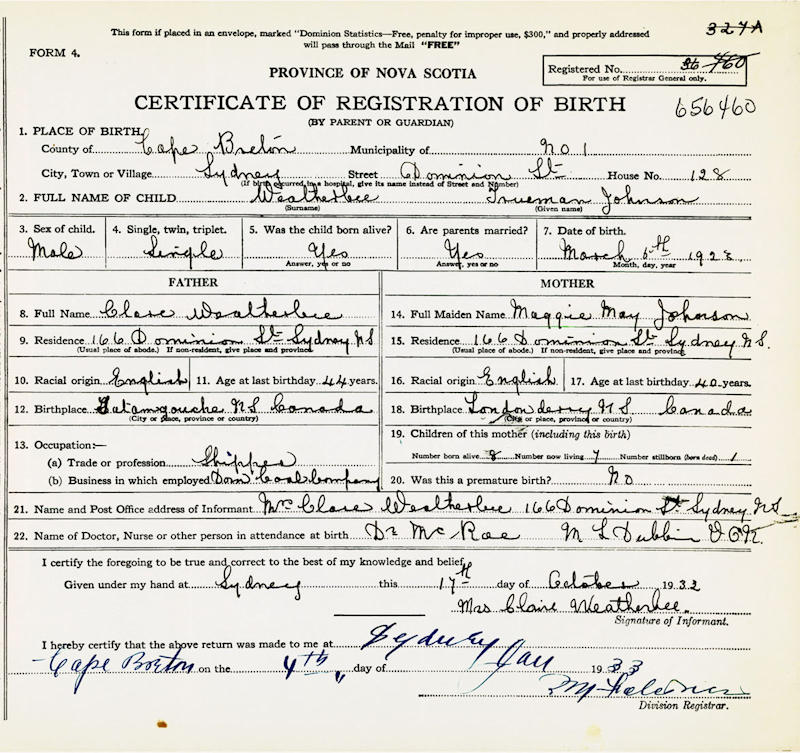 This form if placed in an envelope, marked "Dominion Statistics—Free, penalty for improper use, $300," and properly addressed
will pass through the Mail "FREE"
327A
FORM 4.
Registered No. 36 460
For use of Registrar General only.
PROVINCE OF NOVA SCOTIA
CERTIFICATE OF REGISTRATION OF BIRTH
656460
(BY PARENT OR GUARDIAN)
1. PLACE OF BIRTH,
County of Cape Breton Municipality of No. 1
City, Town or Village Sydney Street Dominion St House No. 128
(If birth occurred in a hospital, give its name instead of Street and Number)
2. FULL NAME OF CHILD Weatherbee Trueman Johnson
(Surname) (Given name)
3. Sex of child. 4. Single, twin, triplet. 5. Was the child born alive? 6. Are parents married? 7. Date of birth.
Male Single Yes Yes March 5th 1928
Answer, yes or no Answer, yes or no Month, day, year
FATHER MOTHER
8. Full Name Clare Weatherbee 14. Full Maiden Name Maggie May Johnson
9. Residence 166 Dominion St Sydney NS 15. Residence 166 Dominion St Sydney N.S.
(Usual place of abode.) If non-resident, give place and province (Usual place of abode.) If non-resident, give place and province
10. Racial origin English 11. Age at last birthday 44 years. 16. Racial origin English 17. Age at last birthday 40 years.
12. Birthplace Tatamgouche NS Canada 18. Birthplace Londonderry NS Canada
(City or place, province or country) (City or place, province or country)
19. Children of this mother (including this birth)
13. Occupation:—
(a) Trade or profession Shipper Number born alive 8 Number now living 7 Number stillborn (born dead) 1
(b) Business in which employed Dom Coal Company 20. Was this a premature birth? No
21. Name and Post Office address of Informant Mrs Clare Weatherbee 166 Dominion St Sydney NS
22. Name of Doctor, Nurse or other person in attendance at birth Dr McRae M L Dubbin
I certify the foregoing to be true and correct to the best of my knowledge and belief
Given under my hand at Sydney this 17th day of October 1932
Mrs Claire Weatherbee.
Signature of Informant.
I hereby certify that the above return was made to me at Sydney
Cape Breton on the 4th day of Jan 1933
Division Registrar.